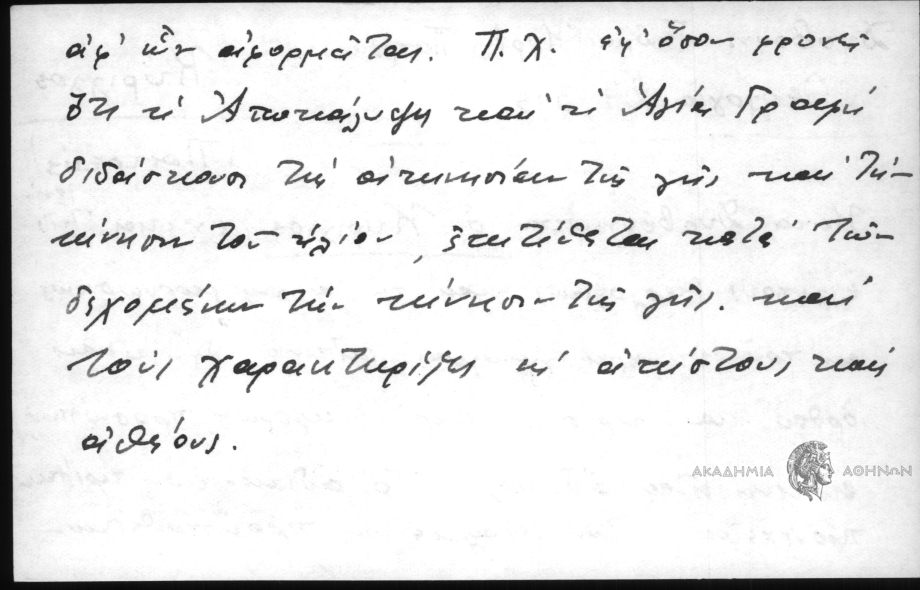 ἀφ' ὧν ἀφορμᾶται. Π.χ. ἐφ' ὅσον φρονεῖ
ὅτι ἡ Ἀποκάλυψη καὶ ἡ Ἁγία Γραφή
διδάσκουσι τὴν ἀκινησίαν τῆς γῆς καὶ τὴν
κίνησιν τοῦ ἡλίου, ἐπιτίθεται κατὰ τῶν
δεχομένων τὴν κίνησιν τῆς γῆς. καὶ
τοὺς χαρακτηρίζει ὡς ἀπίστους καὶ
ἀθέους.
ΑΚΑΔΗΜΙΑ ΑΘΗΝΩΝ